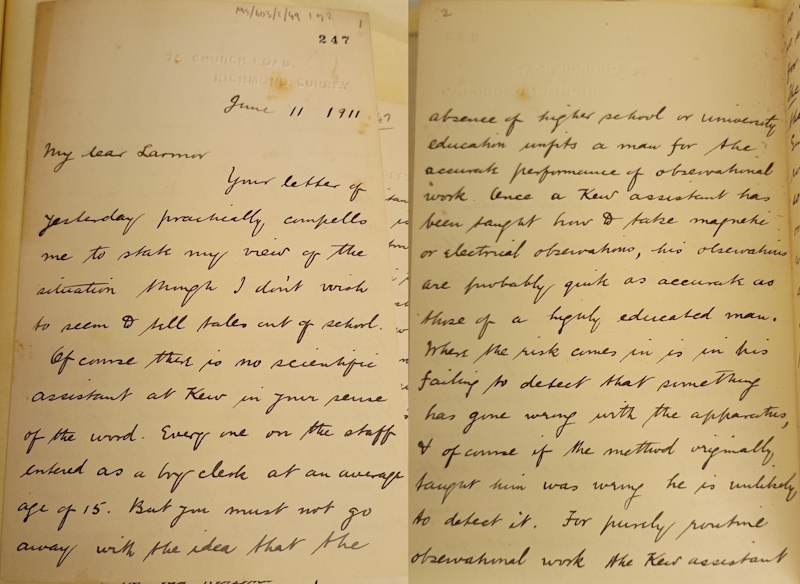 MS/603/2/49 1 of 2
1
247
75 CHURCH ROAD
RICHMOND SURREY
June 11 1911
My dear Larmor
Your letter of
yesterday practically compells
me to state my view of the
situation though I don't wish
to seem to tell tales out of school.
Of course there is no scientific
assistant at Kew in your sense
of the word. Every one on the staff
entered as a boy clerk at an average
age of 15. But you must not go
away with the idea that the
2
absence of higher school or university
education unfits a man for the
accurate performance of observational
work. Once a Kew assistant has
been taught how to take magnetic
or electrical observations, his observations
are probably quite as accurate as
those of a highly educated man.
Where the risk comes in is in his
failing to detect that something
has gone wrong with the apparatus,
& of course if the method originally
taught him was wrong he is unlikely
to detect it. For purely routine
observational work the Kew assistant